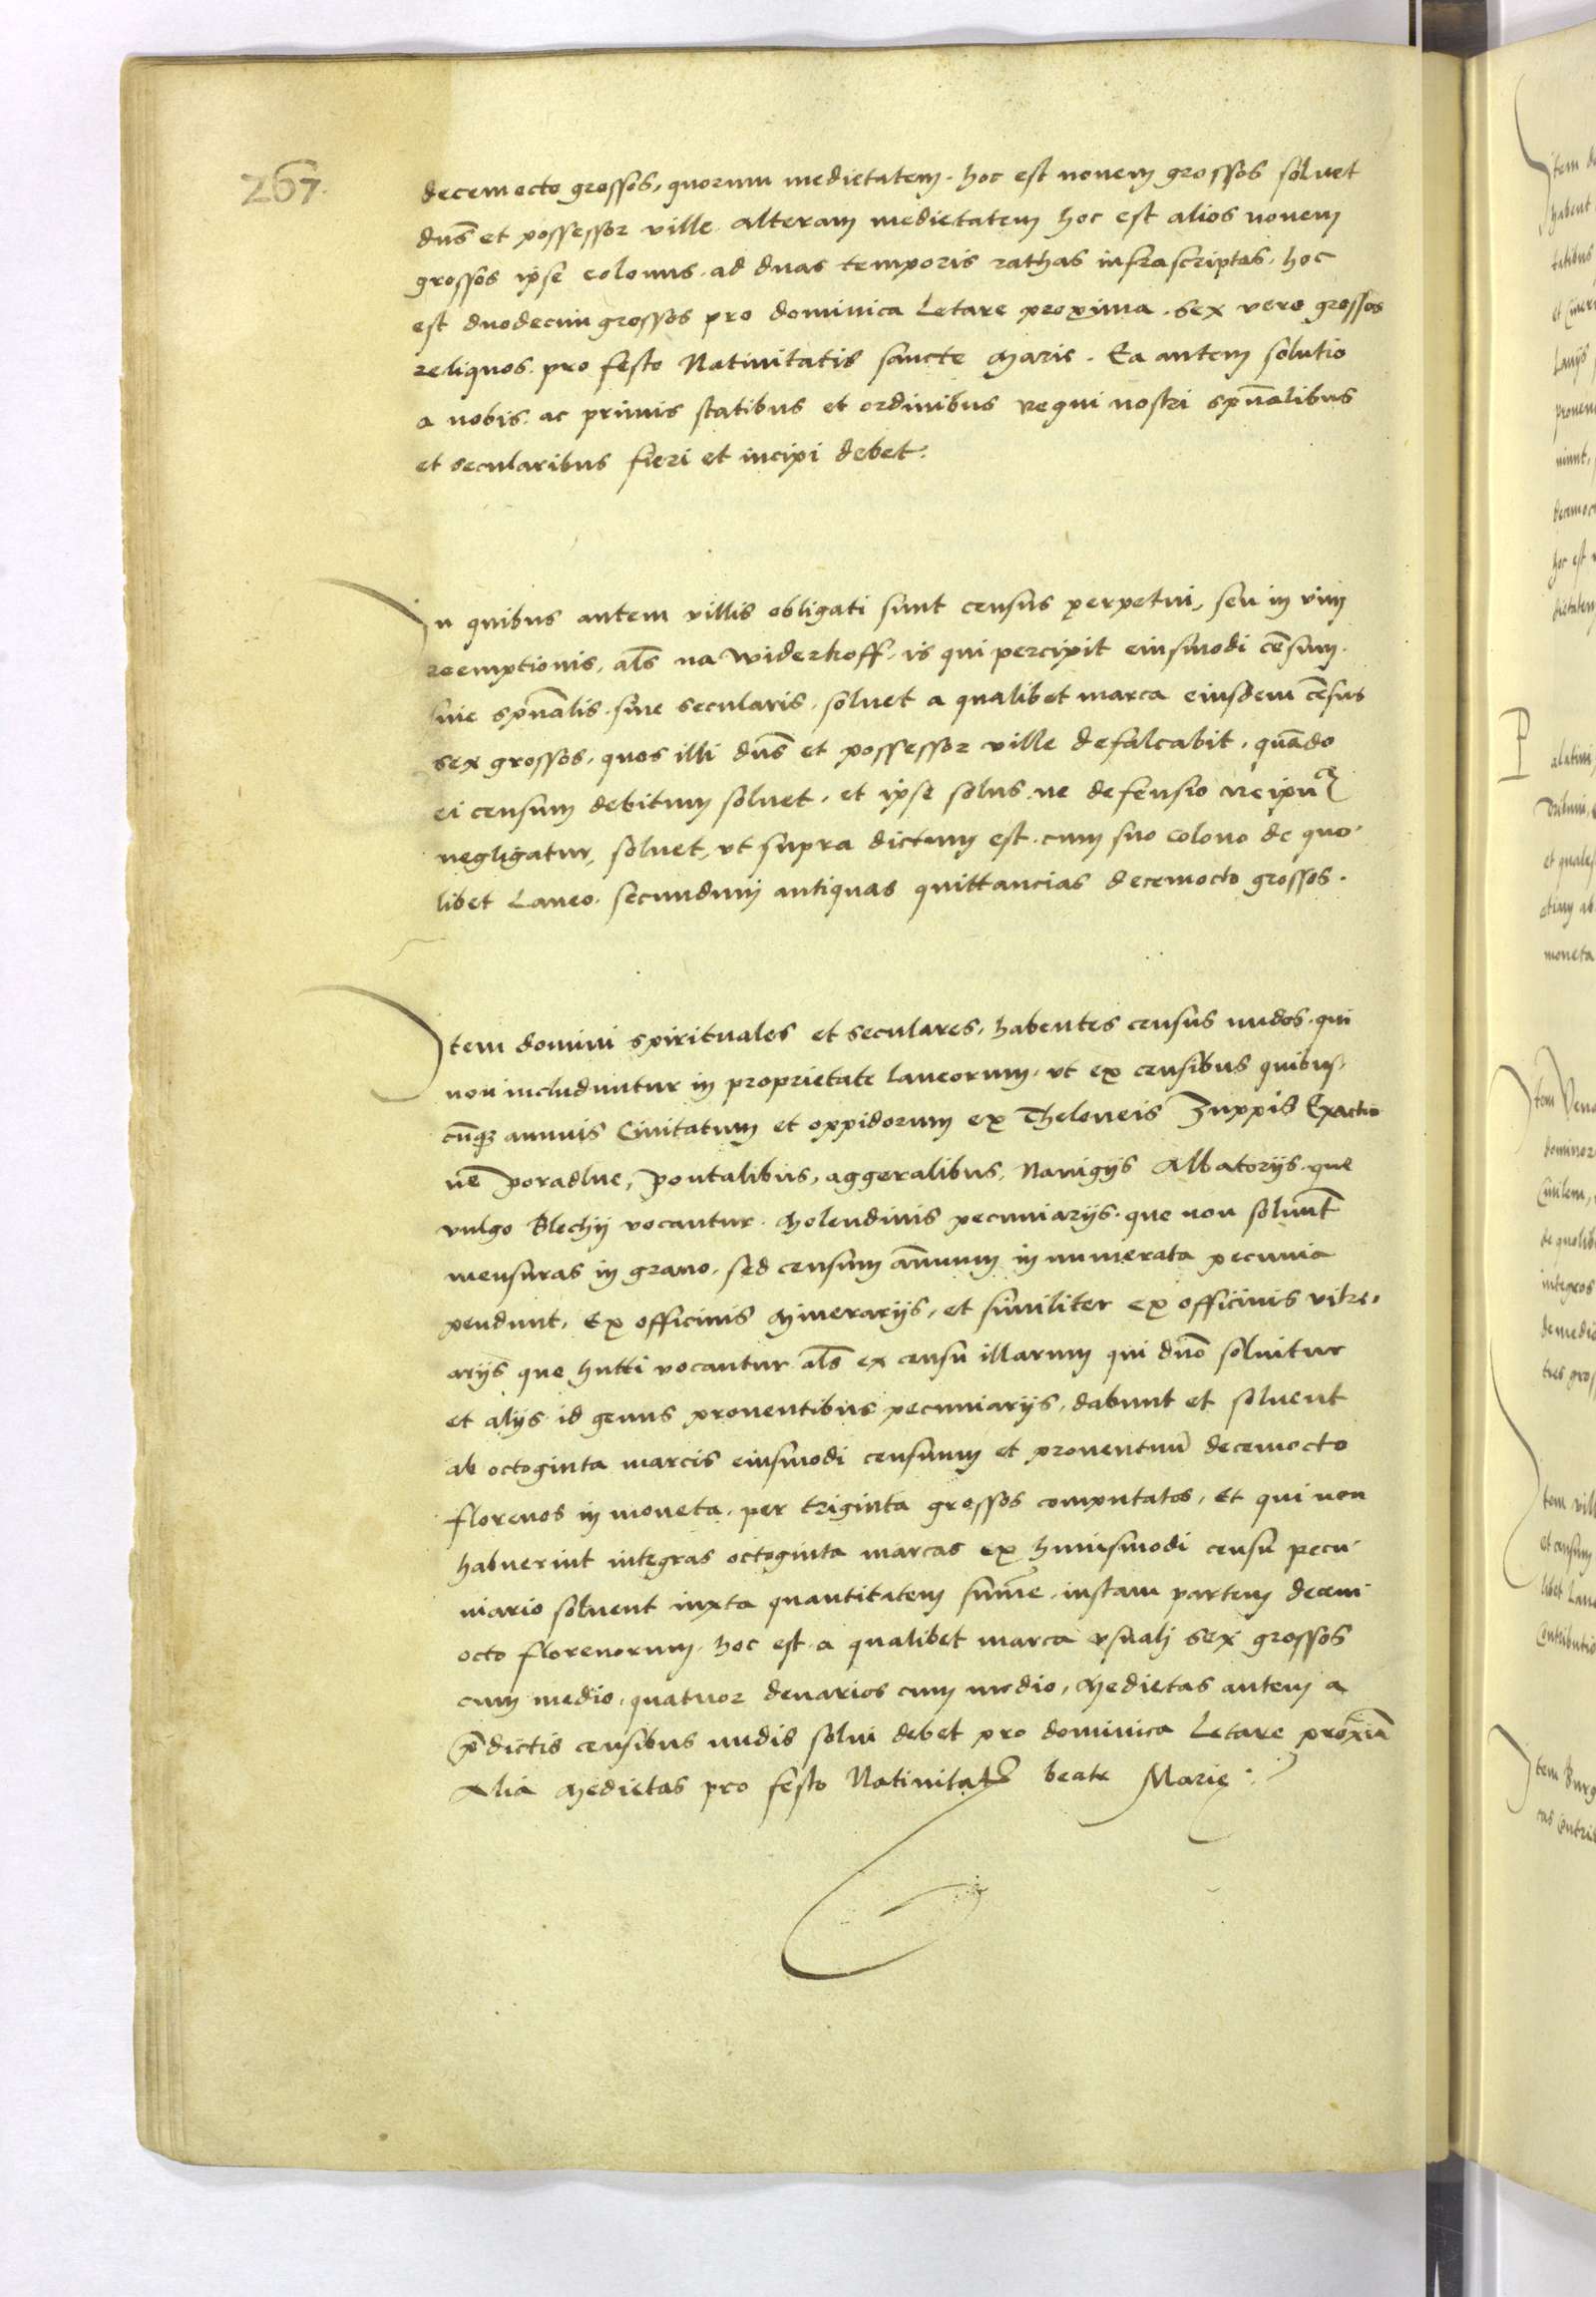 267.
decemocto grossos, quorum medietatem. hoc est novem grossos solvet
dn̄s et possessor ville. alteram medietatem hoc est alios novem
grossos ipse colonus. ad duas temporis rathas infrascriptas. hoc
est duodecim grossos pro dominica Letare proxima. sex vero grossos
reliquos. pro festo Nativitatis sancte Marie. Ea autem solutio
a nobis. ac primis statibus et ordinibus regni nostri sp̄ualibus
et secularibus fieri et incipi debet:
In quibus autem villis obligati sunt census perpetui, seu in vim
reemptionis, al̄s na Widerkoff, is qui percipit eiusmodi cēsum.
sive sp̄ualis. sive secularis. solvet a qualibet marca eiusdem cēsus
sex grossos, quos illi dn̄s et possessor ville defalcabit, quādo
ei censum debitum solvet, et ipse solus ne defensio reipu͞
negligatur, solvet, ut supra dictum est. cum suo colono de quo-
libet Laneo. secundum antiquas quittancias decemocto grossos.
Item domini spirituales et seculares, habentes census nudos. qui
non includuntur in proprietate laneorum, ut ex censibus quibus-
cūq3 annuis Civitatum et oppidorum ex Theloneis Zuppis Exactio
nē poradlne, pontalibus, aggeralibus, Navigijs Albatorijs. que
vulgo Blechÿ vocantur. Molendinis pecuniarijs. que non solvunt̄
mensuras in grano. sed censum an̄uum in numerata pecunia
pendunt, Ex officinis Minerarijs, et similiter ex officinis vitre-
arijs que hutti vocantur al̄s ex censu illarum qui dn̄o solvitur
et alijs id genus proventibus pecuniarijs, dabunt et solvent
ab octoginta marcis eiusmodi censuum et proventuū decemocto
florenos in moneta. per triginta grossos computatos, et qui non
habuerint integras octoginta marcas ex huiusmodi censu pecu-
niario solvent iuxta quantitatem sum̄e. iustam partem decem-
octo florenorum. hoc est. a qualibet marca usuali sex grossos
cum medio, quatuor denarios cum medio, Medietas autem a
p̄dictis censibus nudis solvi debet pro dominica Letare proxīa
Alia Medietas pro festo Nativitatis beate Marie: